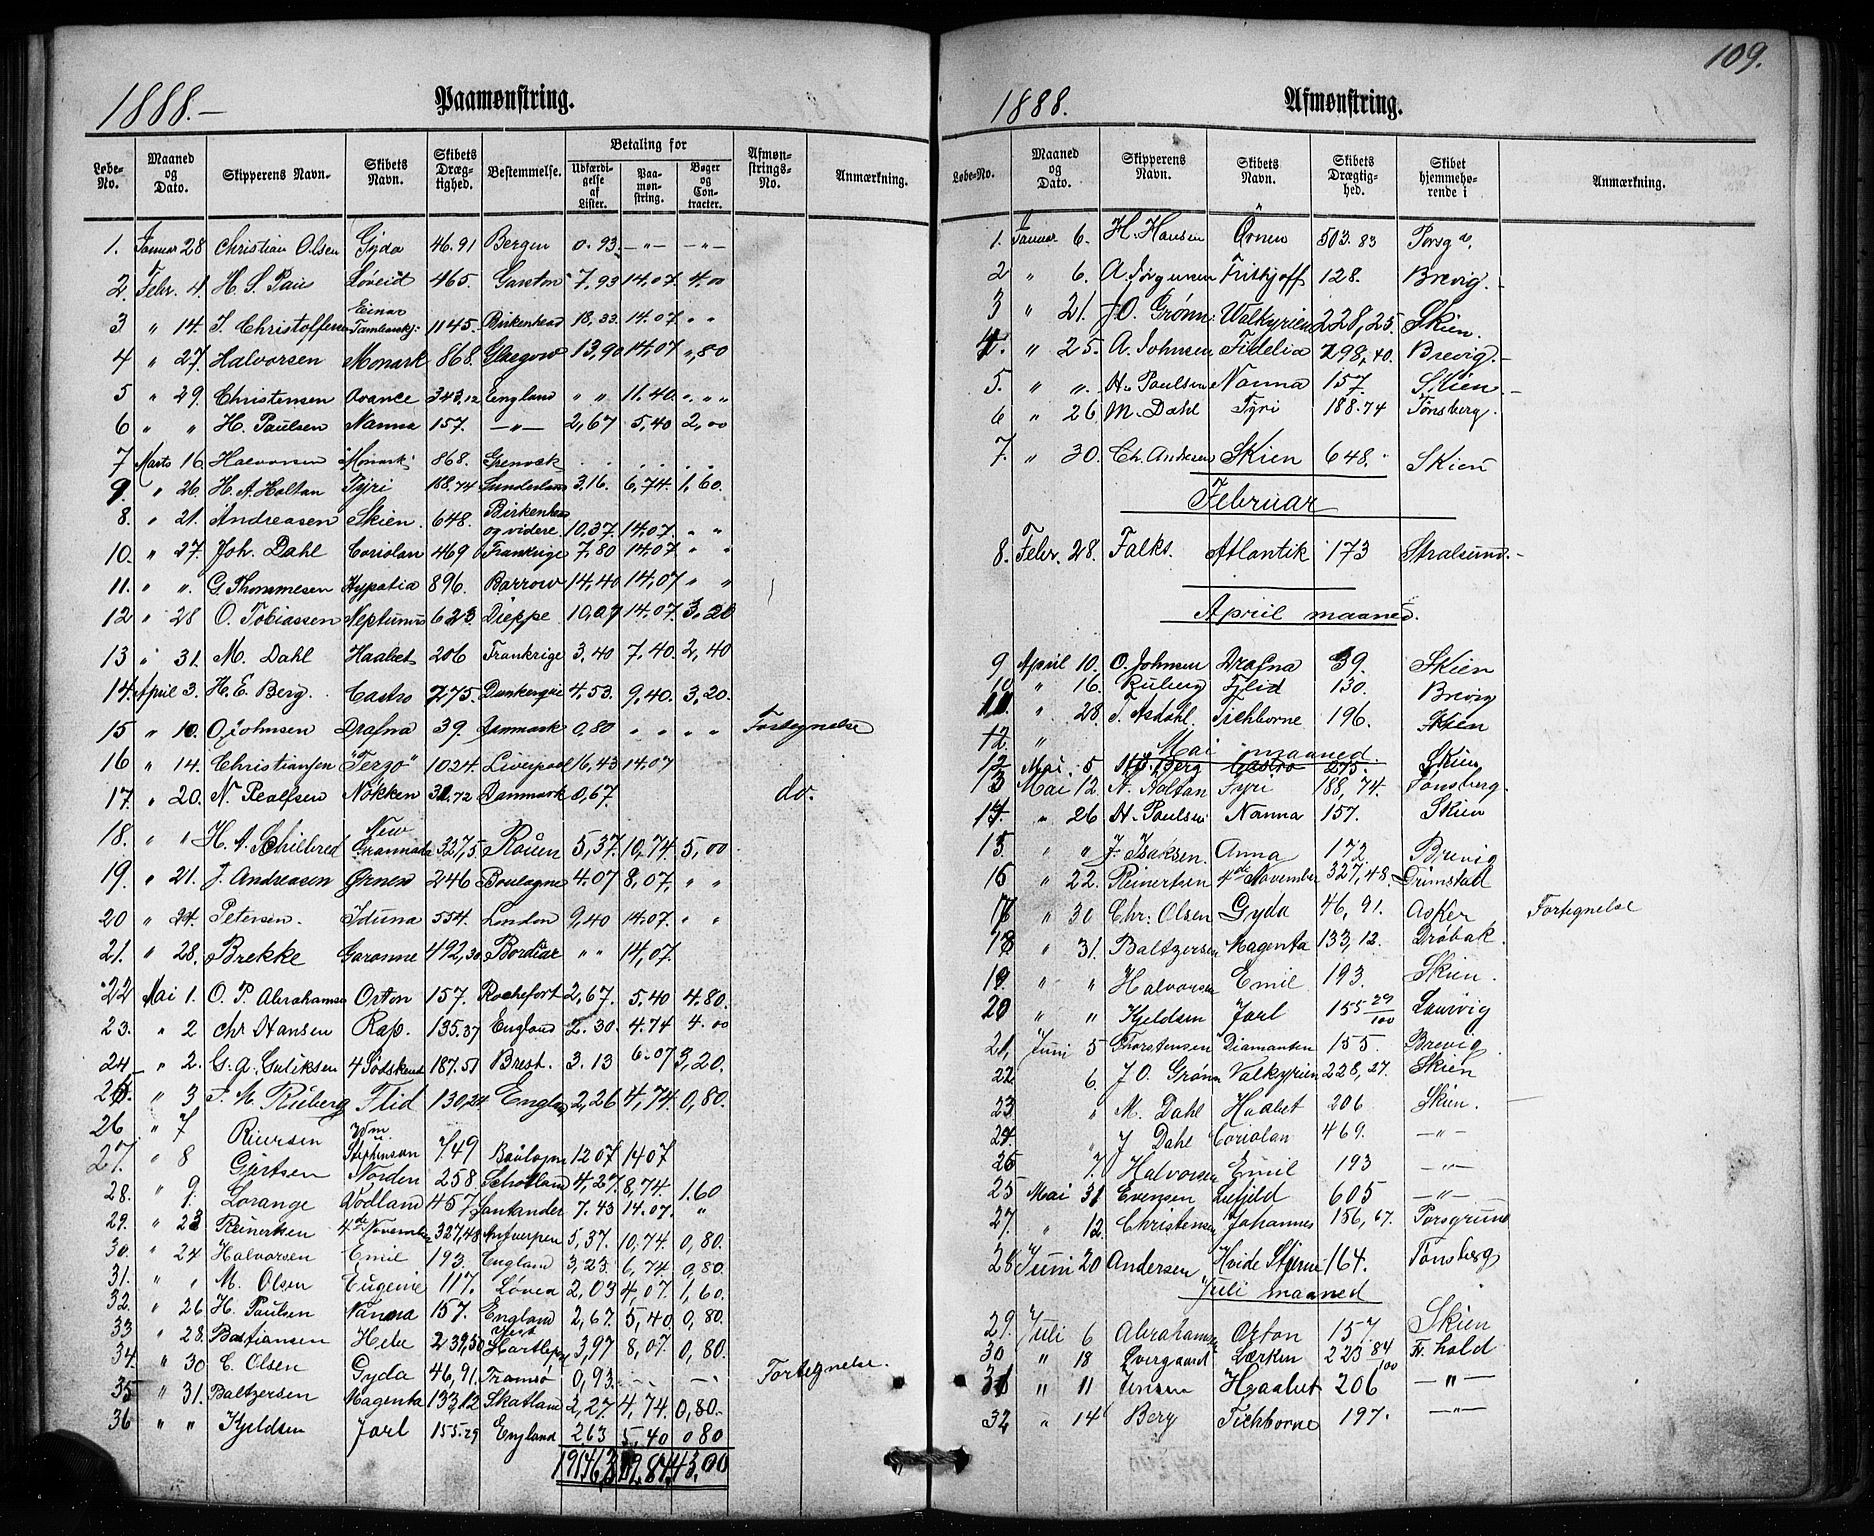 109.
1888.— Paamønstring.
Løbe-No. Maaned og Dato. Skipperens Navn. Skibets Navn. Skibets Drægtighed. Bestemmelse. Betaling for Udfærdigelse af Lister. Paamønstring. Bøger og Contracter. Afmønstrings-No. Anmærkning.
1. Januar 28 Christian Olsen Gyda 46.91 Bergen 0.93. —"— —"—
2. Febr. 4. H. S. Paus Løveid 465. Garston 7,93 14,07. 4,00
3 " 14. J. Christoffersen Einar Tambarskj: 1145. Birkenhead 18,33. 14.07. " "
4 " 27. Halvorsen Monark 868. Glasgow 13,90 14,07 ",80
5 " 29. Christensen Avance 343.12 England " " 11.40. " " "
6 " " H. Paulsen Nanna 157. —"— 2,67 5,40 2,00
7 Marts 16. Halvorsen "Monark" 868. Grenock . . .
9. " 26. H. A. Holtan Tyri 188.74 Sunderland 3,16. 6,74. 1,60.
8. " 21. Andreasen Skien. 648. Birkenhead og videre 10,37. 14,07. " "
10. " 27. Joh. Dahl Coriolan 469 Frankrige 7,80 14.07. " "
11. " ". G. Thommesen Hypatia 896. Barrow 14,40 14,07 " "
12 " 28 O. Tobiassen Neptunus 623. Dieppe 10,07 14.07. 3,20
13 " 31. M. Dahl Haabet 206 Frankrige 3,40 7,40. 2,40
14. April 3. H. E. Berg. Castro 775. Dunkerque 4,53. 9,40. 3,20.
15 " 10. O. Johnsen Drafna 39. Danmark 0,80 " " " Fortegnelse
16 " 14. Christiansen "Terzo" 1024. Liverpool 16,43 14.07
17. " 20. N. Realfsen Nökken 31.72 Danmark 0,67 do.
18. " " H. A. Schilbred New Granada 327,5. Rouen 5,37. 10,74. 5,00
19. " 21. J. Andreasen Ørnen 246 Boulogne 4.07 8,07. " "
20 " 24. Petersen. Iduna 554. London 9,40 14.07. " "
21. " 28. Brekke Garonne 492,30 Bordeaux " " 14,07.
22 Mai 1. O. P. Abrahamsen Orton 157. Rochefort 2,67. 5.40 4.80.
23. " 2 Chr. Hansen Rap. 135.37 England 2.30. 4.74 4.00
24 " 2. G. A. Guliksen 4 Södskend 187.51 Brest. 3.13 6.07 3,20.
25. " 3 J. M. Ruberg Flid 130,24 England 2,26 4,74. 0,80.
26 " 7 Riversen Wm Stephenson 749 Boulogne 12 07 14 07
27. " 8 Gjertsen Norden 258. Schotland 4,27. 8,74. 1.60
28. " 9. Lorange Vødland 457 Santander 7.43 14.07. "
29. " 23 Reinertsen 4de November 327,48 Antverpen 5,37. 10,74. 0,80.
30. " 24 Halvorsen Emil 193. England 3,23. 6,74. 0,80.
31. " " M. Olsen Eugenie 117. Löven 2,03 4,07. 1,60.
32. " 26 H. Paulsen Nanna 157. England 2,67. 5,40 0,80.
33 " 28. Bastiansen Hebe 239,50 West Hartlepool 3,97 8,07. 0,80.
34. " 30 C. Olsen Gyda 46,91. Tromsø 0,93. —"— Fortegnelse.
35 " 31. Baltzersen Magenta 133,12 Skotland 2,27. 4,74. 0,80.
36 " " Kjeldsen Jarl 155.29 England 2.63 5,40 0 80
43,00
1888. Afmønstring.
Løbe-No. Maaned og Dato. Skipperens Navn. Skibets Navn. Skibets Drægtighed. Skibet hjemmehørende i Anmærkning.
1. Januar 6. H. Hansen Örnen 503.83 Porsg.
2 " 6. A. Jörgensen Frithjoff 128. Brevig.
3 " 21. J. O. Grønn: Walkyrien 228,25. Skien.
4. " 25. A. Johnsen Fidelia 298,40. Brevig.—
5. " ". H. Paulsen Nanna 157. Skien.—
6 " 26 M. Dahl Tyri 188.74 Tønsberg.
7. " 30. Ch. Andersen Skien 648." Skien
Februar
8. Febr. 28. Falks. Atlantik 173 Stralsund.—
April maaned.
9 April 10. O. Johnsen Drafna 39. Skien
10 " 16. Ruberg Fjlid 130. Brevig
11. " 28. T. Asdahl. Tichborne 196. Skien
12. " Mai maaned.
12 Mai 5 H. E. Berg Castro 275. Skien
13 Mai 12. A. Holtan Tyri 188,74. Tønsberg.
14. " 26 H. Paulsen Nanna 157. Skien
15. " " J. Isaksen. Anna 172 Brevig
16 " 22. Reinertsen 4de November 327,48. Grimstad
17 " 30 Chr: Olsen Gyda 46,91. Asker Fortegnelse
18 " 31. Baltzersen Magenta 133,12. Dröbak.
19 " " Halvorsen Emil 193. Skien.
20 " " Kjeldsen Jarl 155 29/100 Laurvig
21, Juni 5 Thorstensen Diamanten 155. Brevig.
22 6. J O. Grønn Valkyrien 228,27. Skien
23 " M. Dahl Haabet 206 Skien.
24. " J Dahl Coriolan 469. —"—
25 7. Halvorsen Emil 193 —"—
25 Mai 31 Evensen Lufjeld 605 —"—
27. " 12. Christensen Johannes 156,67. Porsgrund
28 Juni 20 Andersen Hvide Stjerne 164. Tønsberg
Juli maaned
29. Juli 6 Abrahamsen Orton 157 Skien
30 " 18 Overgaard Lærken 223 84/100 Fr. hald
31 " 11 Jensen Haabet 206 —"—
32 " 14 Berg Tichborne 197. —"—